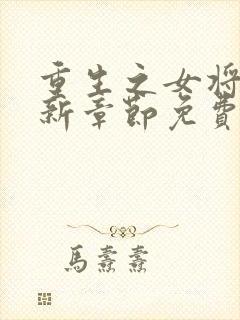 重生之女将
新章節免費
馬熹熹